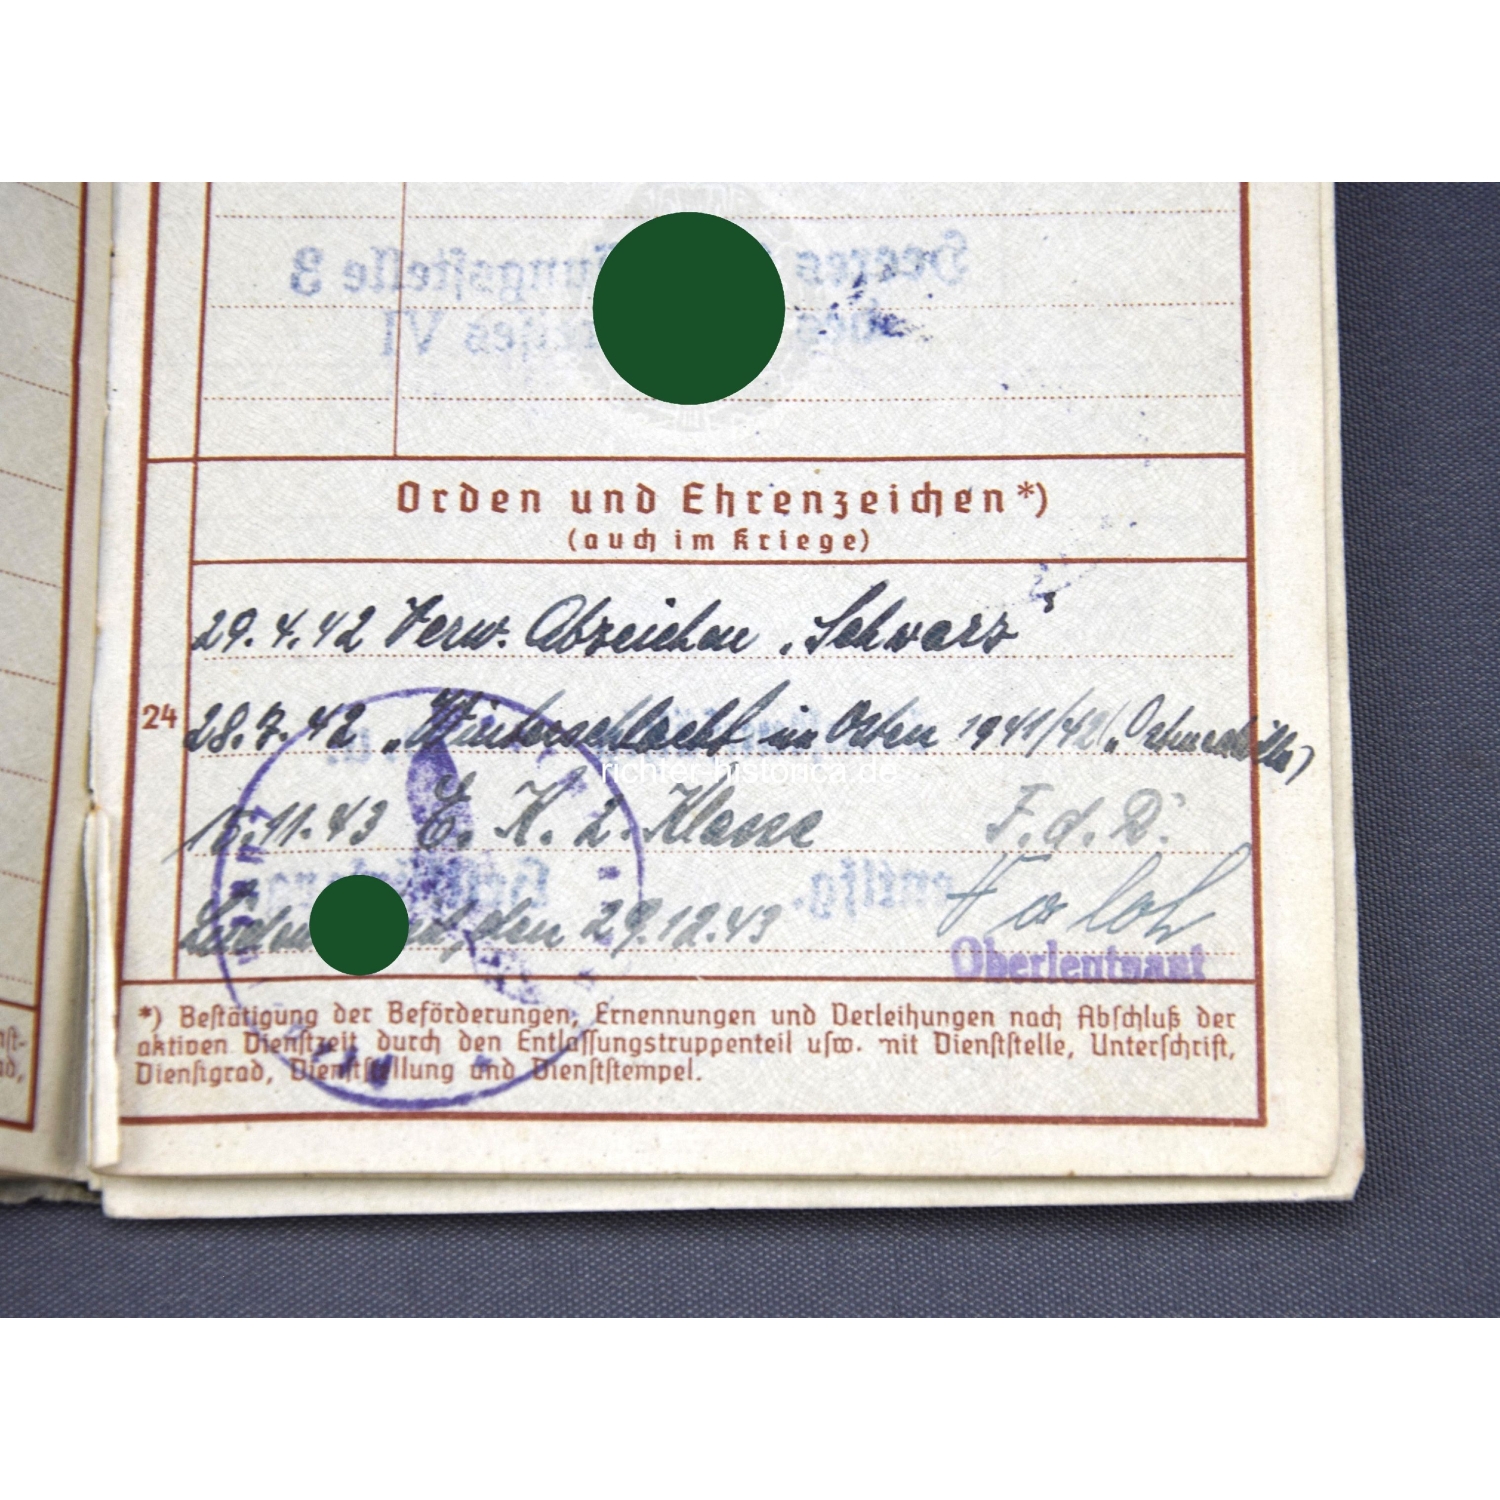 Orden und Ehrenzeichen*)
(auch im Kriege)
29.4.42 Verw. Abzeichen „Schwarz"
24
28.7.42 „Winterschlacht im Osten 1941/42 („Ostmedaille)
richter-historica.de
15.11.43 E. K. 2. Klasse F.d.R.
den 29.12.43
Oberleutnant
*) Bestätigung der Beförderungen, Ernennungen und Verleihungen nach Abschluß der
aktiven Dienstzeit durch den Entlassungstruppenteil usw. mit Dienststelle, Unterschrift,
Dienstgrad, Dienststellung und Dienststempel.